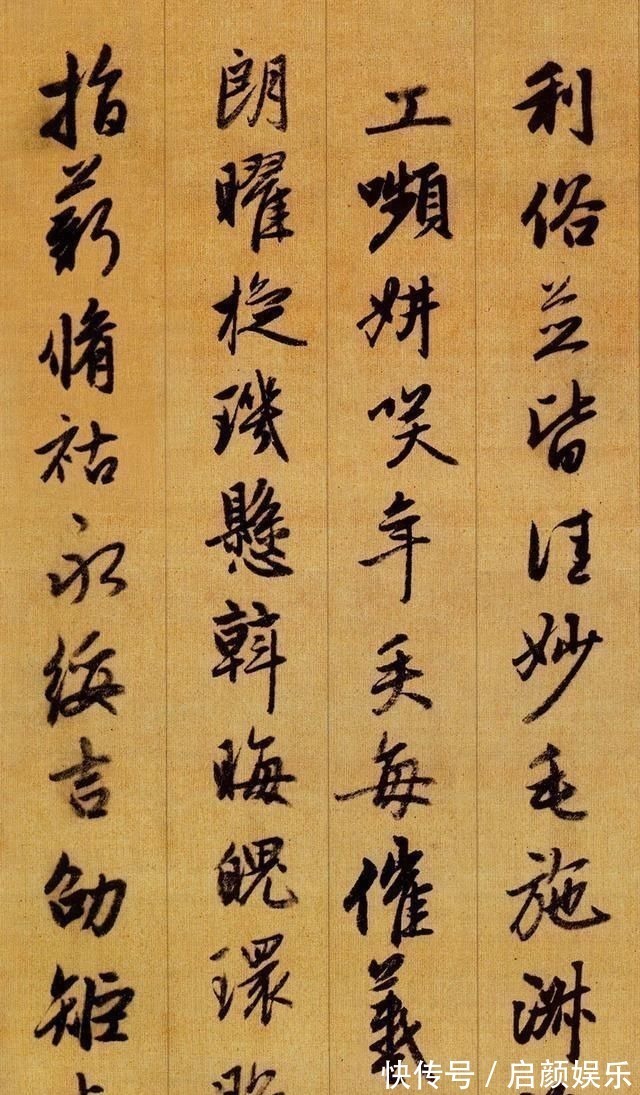 利俗並皆佳妙毛施淑
工嚬妍咲年矢每催羲
朗曜旋璣懸斡晦魄環
指薪脩祜永綏吉劭矩
快传号 / 启颜娱乐